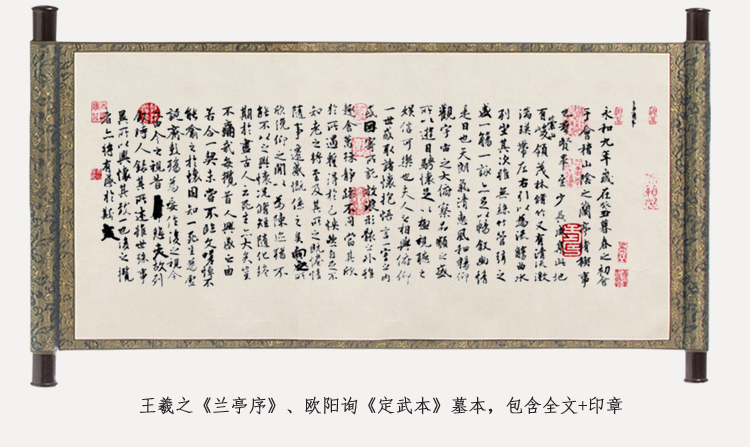 永和九年歲在癸丑暮春之初會
于會稽山陰之蘭亭脩稧事
也羣賢畢至少長咸集此地
有崇山峻領茂林脩竹又有清流激
湍暎帶左右引以為流觴曲水
列坐其次雖無絲竹管弦之
盛一觴一詠亦足以暢敘幽情
是日也天朗氣清惠風和暢仰
觀宇宙之大俯察品類之盛
所以遊目騁懷足以極視聽之
娛信可樂也夫人之相與俯仰
一世或取諸懷抱悟言一室之內
或因寄所託放浪形骸之外雖
趣舍萬殊靜躁不同當其欣
於所遇蹔得於己怏然自足不
知老之將至及其所之既惓情
隨事遷感慨係之矣向之所
欣俛仰之閒以為陳迹猶不
能不以之興懷況脩短隨化終
期於盡古人云死生亦大矣豈
不痛哉每攬昔人興感之由
若合一契未嘗不臨文嗟悼不
能喻之於懷固知一死生為虛
誕齊彭殤為妄作後之視今
亦由今之視昔悲夫故列
敘時人錄其所述雖世殊事
異所以興懷其致一也後之攬
者亦將有感於斯文
王羲之《兰亭序》、欧阳询《定武本》墓本，包含全文+印章